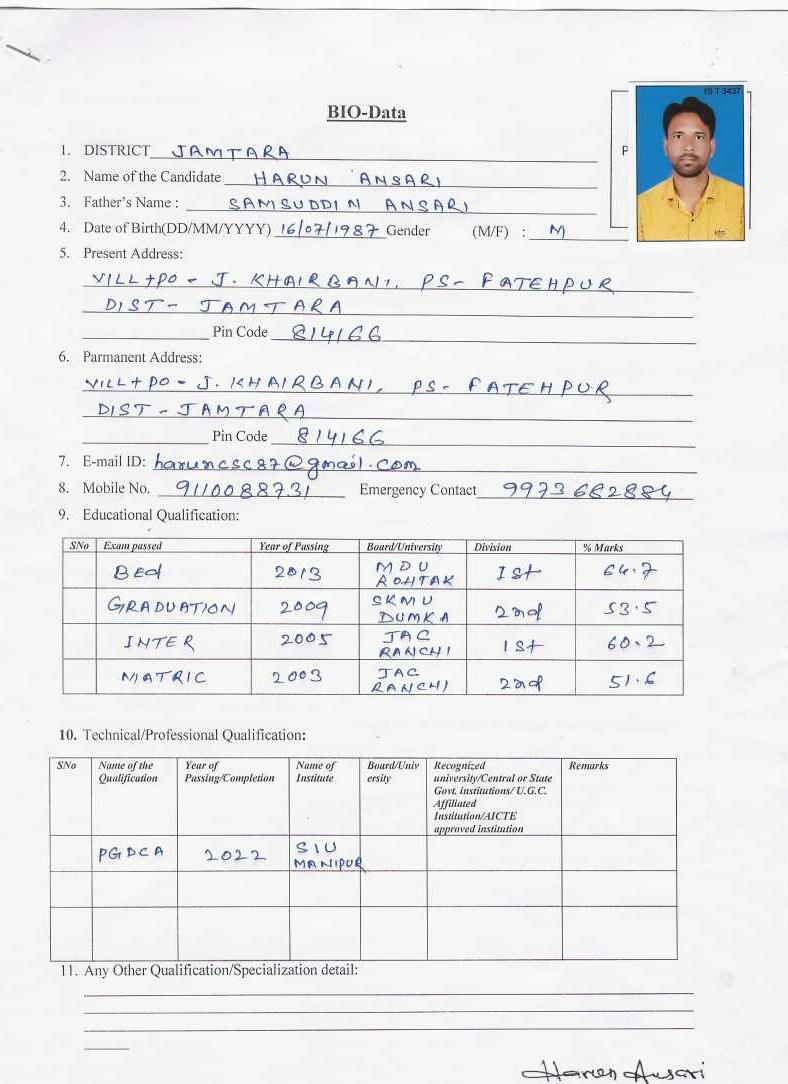 19 T 3437
BIO-Data
P
1. DISTRICT JAMTARA
2. Name of the Candidate HARUN ANSARI
3. Father's Name : SAMSUDDIN ANSARI
4. Date of Birth(DD/MM/YYYY) 16/07/1987 Gender (M/F) : M
5. Present Address:
VILL+PO - J. KHAIRBANI, PS- FATEHPUR
DIST- JAMTARA
Pin Code 814166
6. Parmanent Address:
VILL+PO - J. KHAIRBANI, PS- FATEHPUR
DIST - JAMTARA
Pin Code 814166
7. E-mail ID: haruncsc87@gmail.com
8. Mobile No. 9110088731 Emergency Contact 9973682884
9. Educational Qualification:
SNo Exam passed Year of Passing Board/University Division % Marks
BEd 2013 MDU ROHTAK 1st 64.7
GRADUATION 2009 SKMU DUMKA 2nd 53.5
INTER 2005 JAC RANCHI 1st 60.2
MATRIC 2003 JAC RANCHI 2nd 51.6
10. Technical/Professional Qualification:
SNo Name of the Qualification Year of Passing/Completion Name of Institute Board/University Recognized university/Central or State Govt. institutions/ U.G.C. Affiliated Institution/AICTE approved institution Remarks
PGDCA 2022 SIU MANIPUR
11. Any Other Qualification/Specialization detail:
Harun Ansari